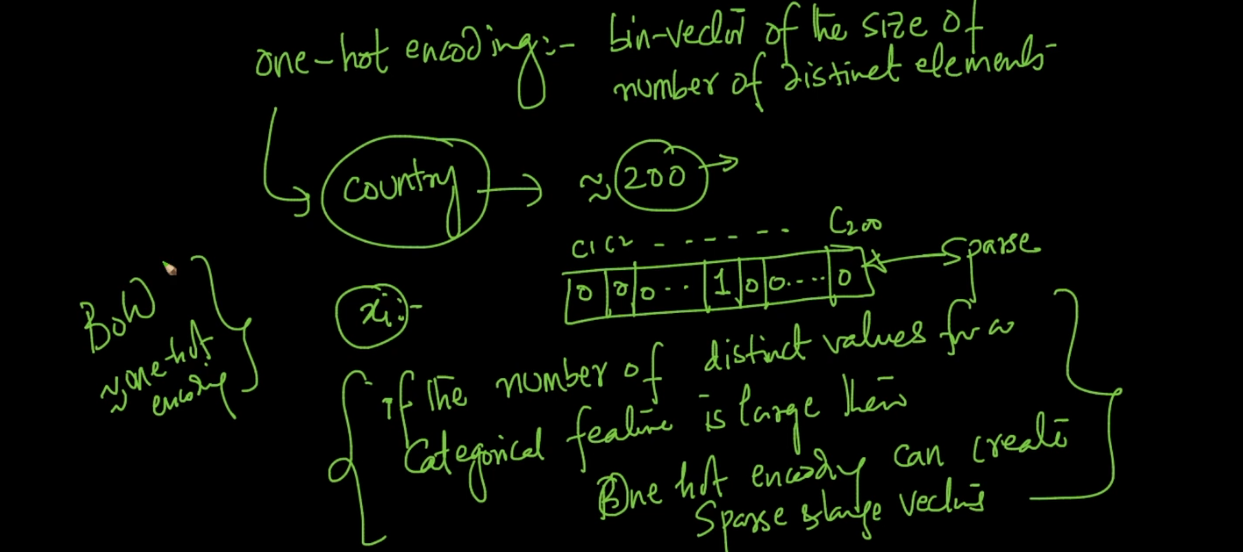 one-hot encoding:- bin-vector of the size of
number of distinct elements
country → ≈ 200 →
C1 C2 - - - - - - - C200
0 0 0 .. 1 0 0 .... 0 ← Sparse
xi:-
BoW
≈ one-hot
encoding
if the number of distinct values for a
Categorical feature is large then
One hot encody can create
Sparse & large vectors